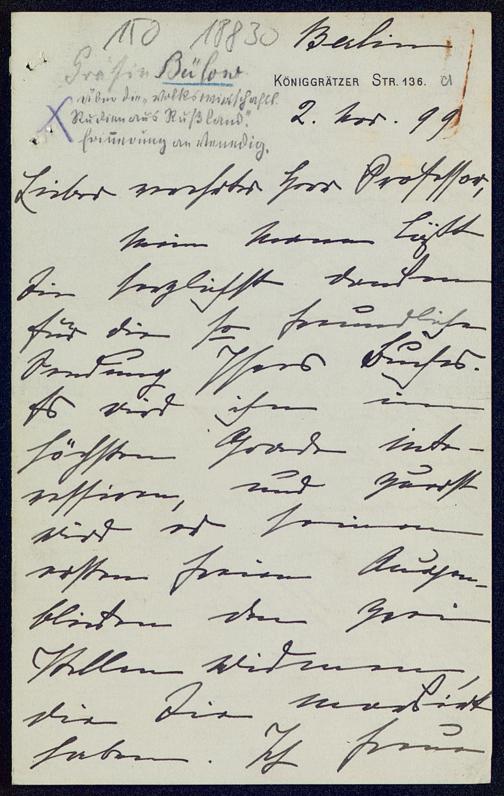 150 18830
Berlin
Gräfin Bülow
KÖNIGGRÄTZER STR. 136. cl
über die „Volkswirtschaftl.
Studien aus Rußland".
Erinnerung an Venedig.
2. Nov. 99
Lieber verehrter Herr Professor,
mein Mann läßt
Sie herzlichst danken
für die so freundliche
Sendung Ihres Buches.
Es wird ihn im
höchsten Grade inte-
ressiren, und zuerst
wird er seinen
ersten freien Augen-
blicken den zwei
Stellen widmen,
die Sie markirt
haben. Ich freue